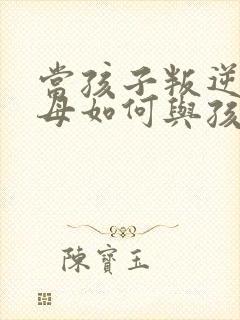 當孩子叛逆
母如何與孩
陳寶玉